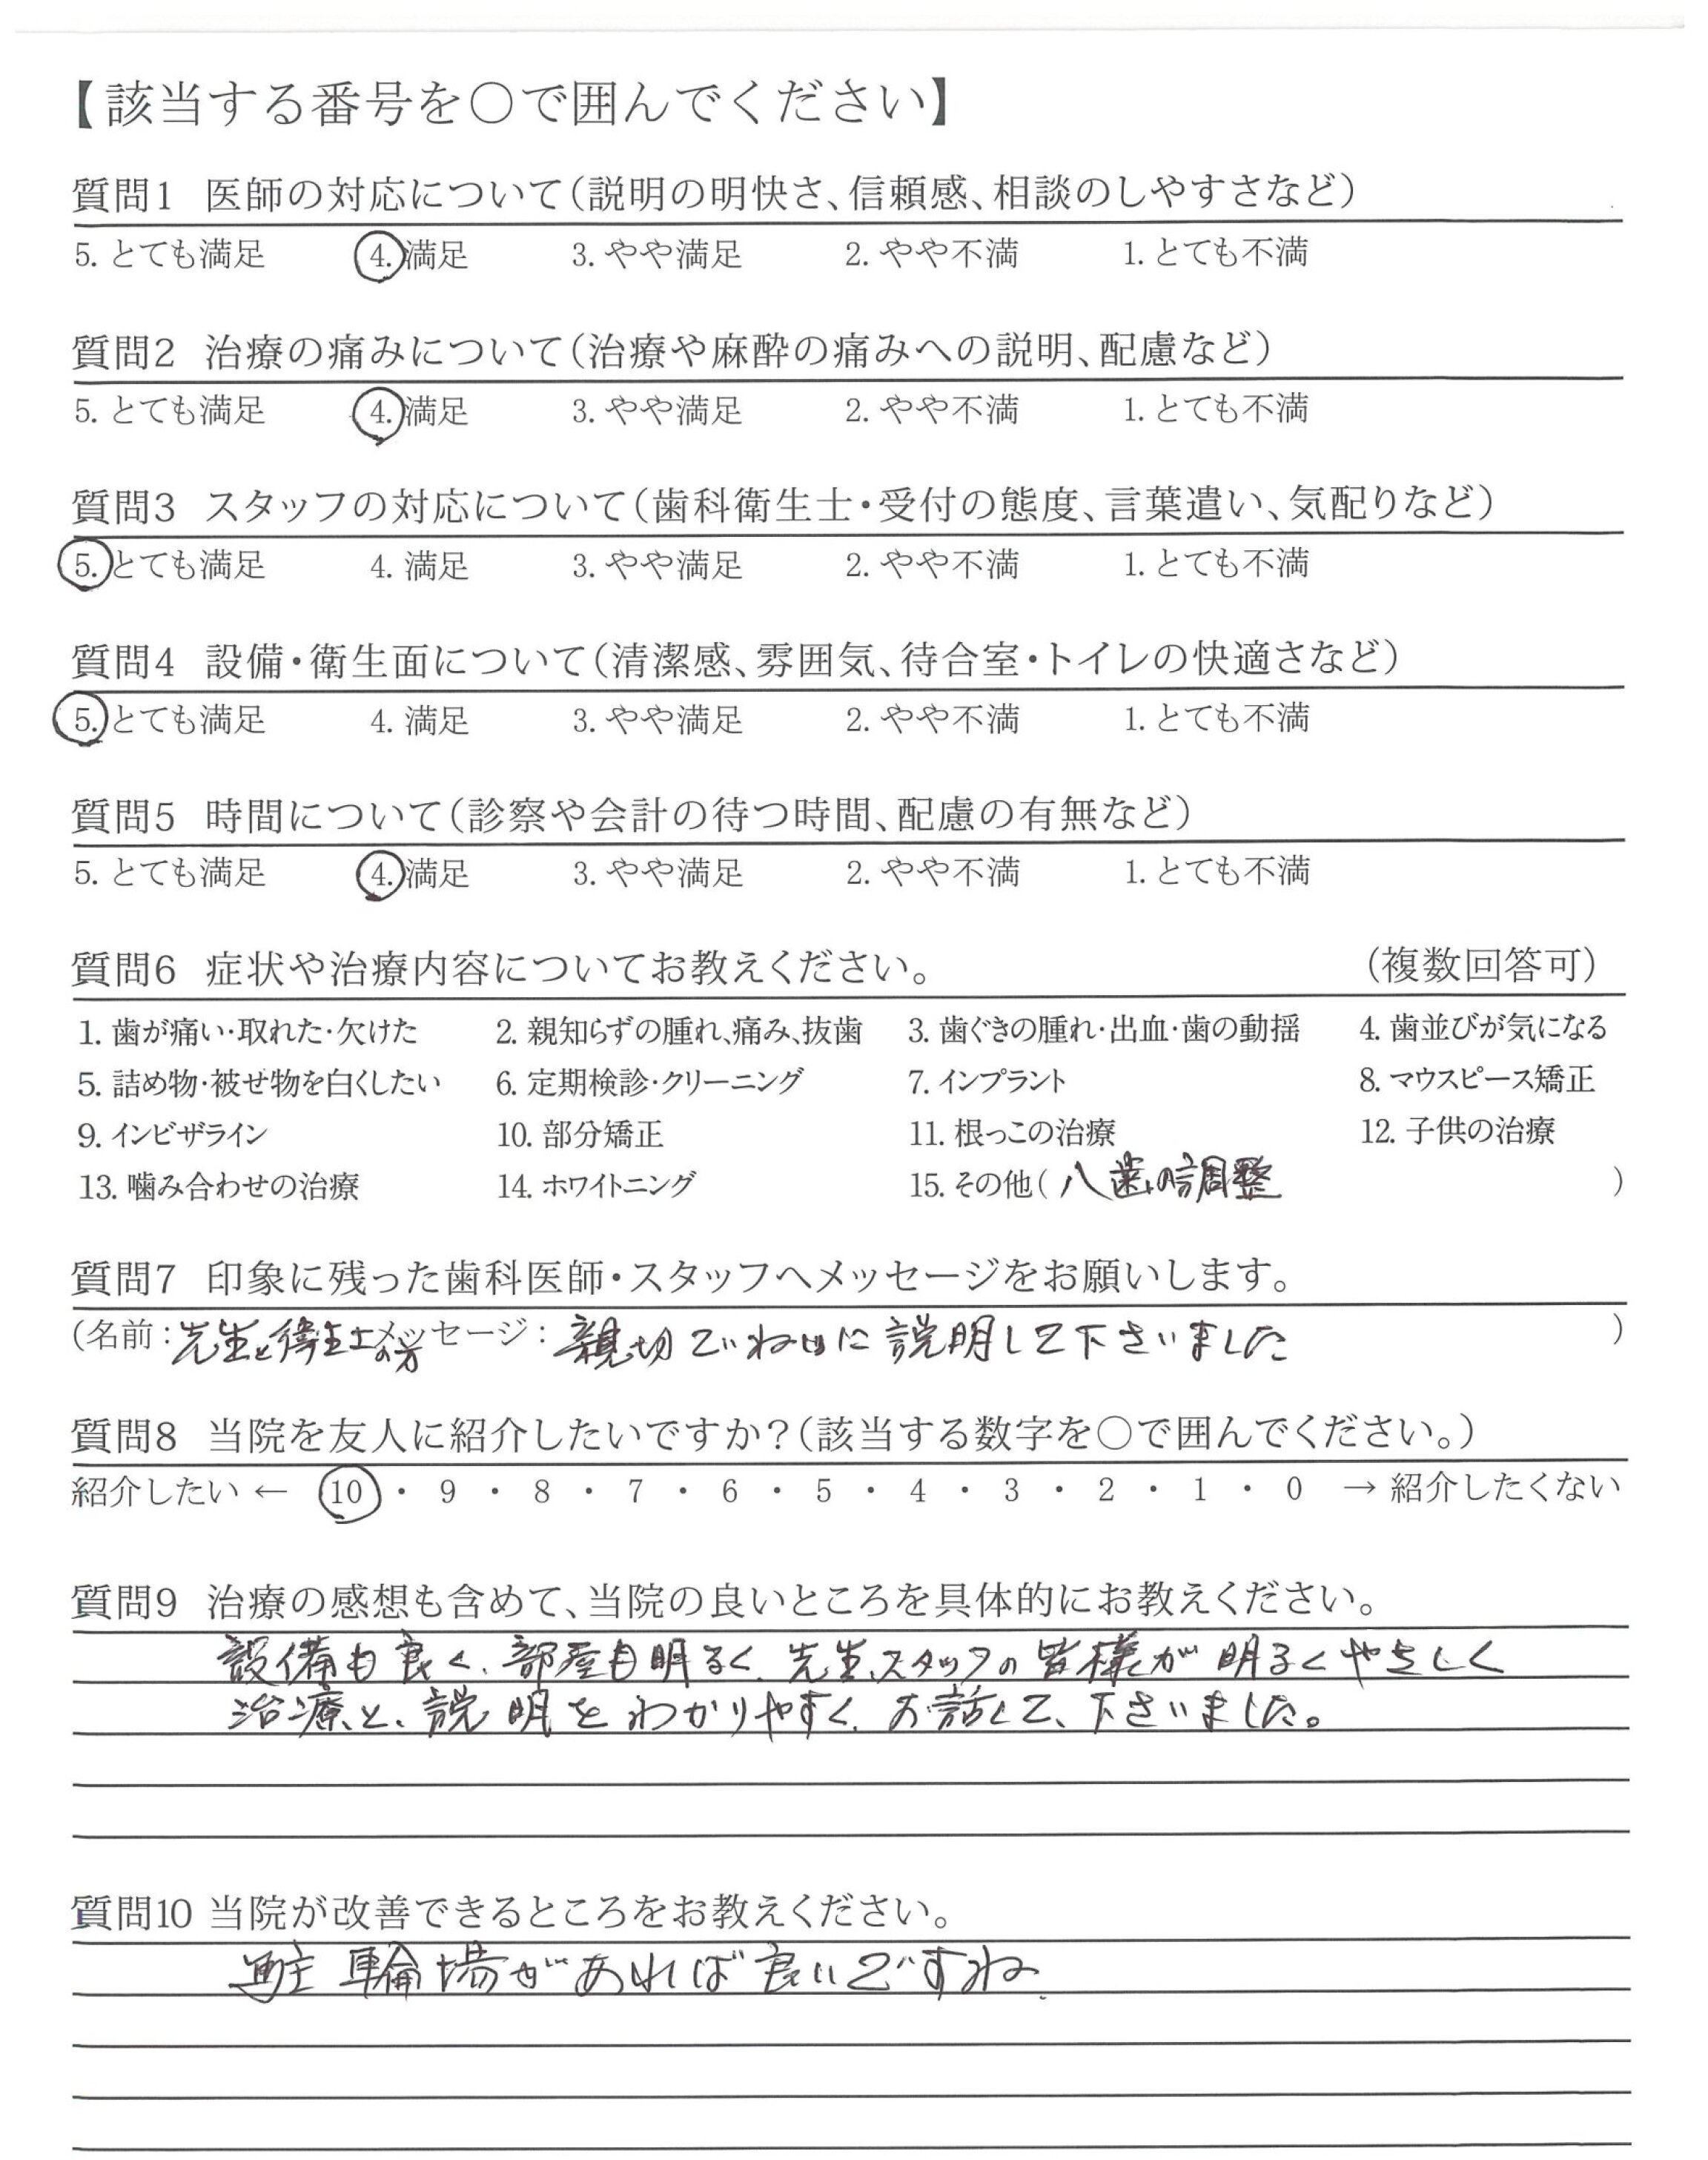 【該当する番号を○で囲んでください】
質問1 医師の対応について(説明の明快さ、信頼感、相談のしやすさなど)
5. とても満足 4. 満足 3. やや満足 2. やや不満 1. とても不満
質問2 治療の痛みについて(治療や麻酔の痛みへの説明、配慮など)
5. とても満足 4. 満足 3. やや満足 2. やや不満 1. とても不満
質問3 スタッフの対応について(歯科衛生士・受付の態度、言葉遣い、気配りなど)
5. とても満足 4. 満足 3. やや満足 2. やや不満 1. とても不満
質問4 設備・衛生面について(清潔感、雰囲気、待合室・トイレの快適さなど)
5. とても満足 4. 満足 3. やや満足 2. やや不満 1. とても不満
質問5 時間について(診察や会計の待つ時間、配慮の有無など)
5. とても満足 4. 満足 3. やや満足 2. やや不満 1. とても不満
質問6 症状や治療内容についてお教えください。 (複数回答可)
1. 歯が痛い・取れた・欠けた 2. 親知らずの腫れ、痛み、抜歯 3. 歯ぐきの腫れ・出血・歯の動揺 4. 歯並びが気になる
5. 詰め物・被せ物を白くしたい 6. 定期検診・クリーニング 7. インプラント 8. マウスピース矯正
9. インビザライン 10. 部分矯正 11. 根っこの治療 12. 子供の治療
13. 噛み合わせの治療 14. ホワイトニング 15. その他( 八歯の調整 )
質問7 印象に残った歯科医師・スタッフへメッセージをお願いします。
(名前:先生と衛生士の方 メッセージ: 親切でいねいに説明して下さいました )
質問8 当院を友人に紹介したいですか?(該当する数字を○で囲んでください。)
紹介したい ← 10 ・ 9 ・ 8 ・ 7 ・ 6 ・ 5 ・ 4 ・ 3 ・ 2 ・ 1 ・ 0 → 紹介したくない
質問9 治療の感想も含めて、当院の良いところを具体的にお教えください。
設備も良く、部屋も明るく、先生、スタッフの皆様が明るくやさしく
治療と、説明をわかりやすく、お話して、下さいました。
質問10 当院が改善できるところをお教えください。
駐輪場があれば良いですね